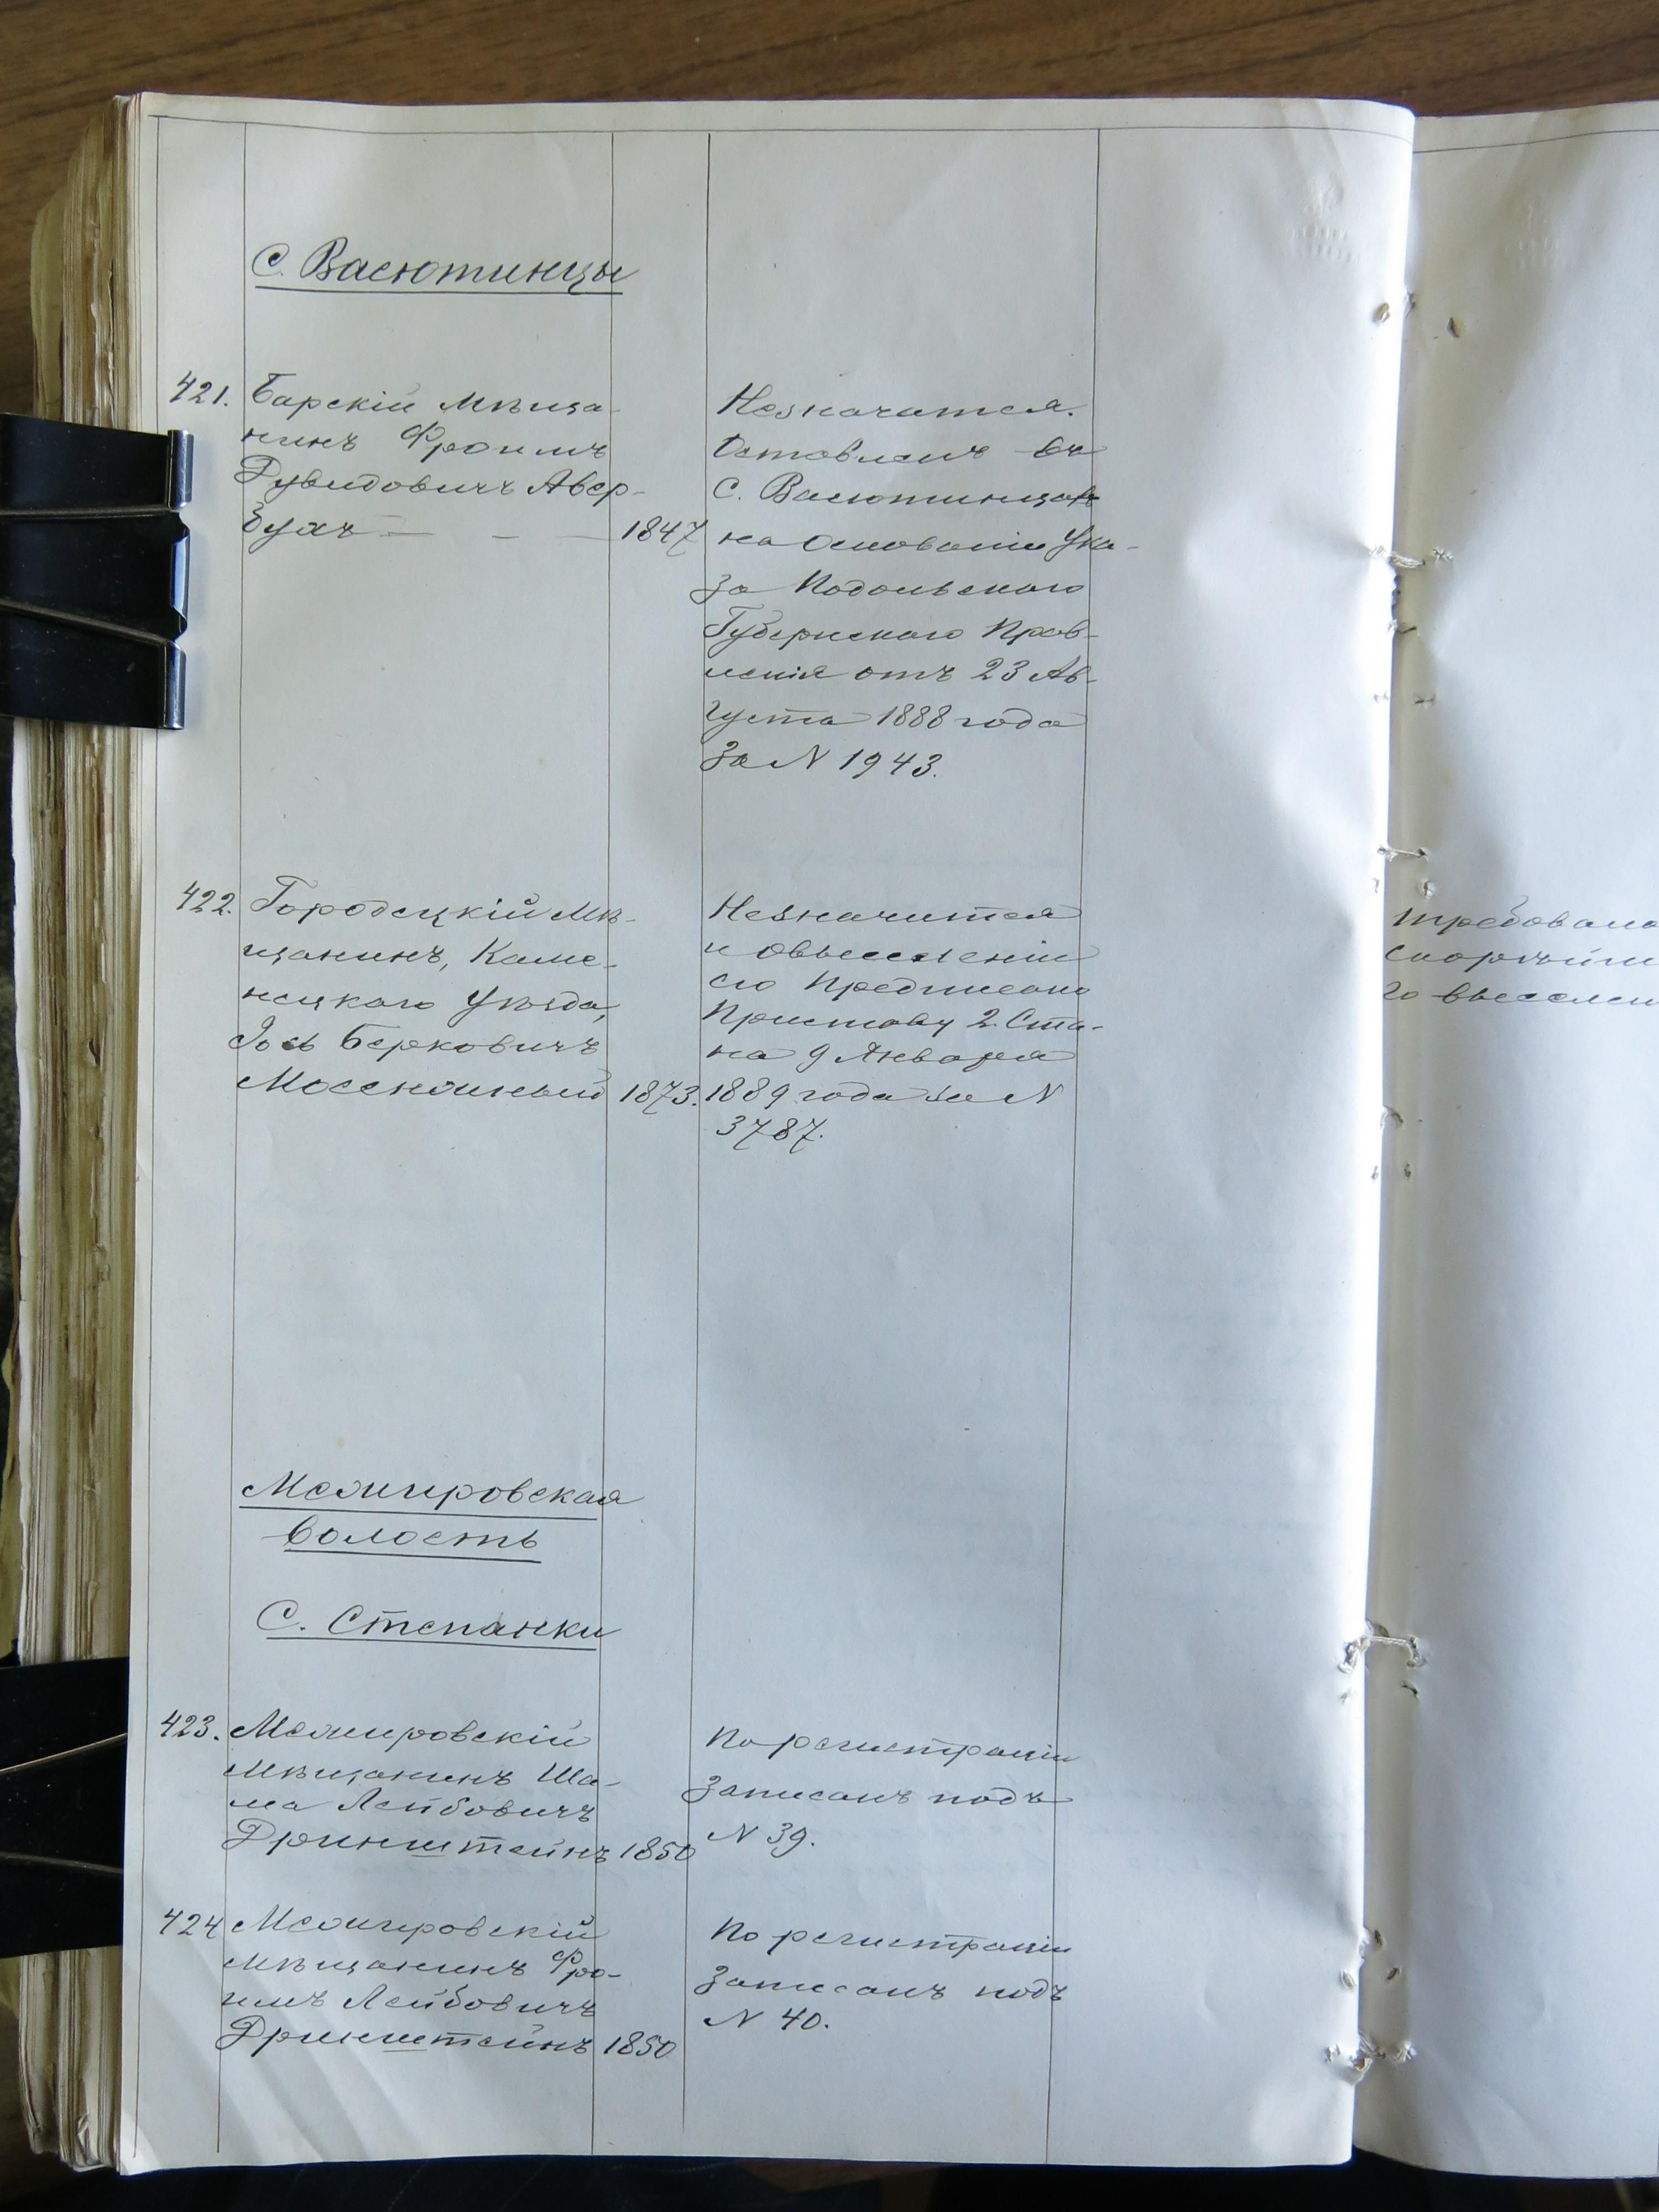 С. Васютинцы
421. Барскій Мѣща-
нинъ Фроимъ
Дувидовичъ Авер-
бухъ — — — 1847
Незначится.
Оставленъ въ
С. Васютинцахъ
на основаніи Ука-
за Подольскаго
Губернскаго Прав-
ленія отъ 23 Ав-
густа 1888 года
За N 1943.
422. Городецкій Мѣ-
щанинъ, Каме-
нецкаго Уѣзда,
Іось Берковичъ
1873.
Незначится
и овыселеніи
его Предписано
Приставу 2. Ста-
на 9 Января
1889 года за N
3787.
Межировская
Волость
С. Степанки
423. Межировскій
Мѣщанинъ Ша-
ма Лейбовичъ
Гринштейнъ 1850
По регистраціи
Записанъ подъ
N 39.
424 Межировскій
Мѣщанинъ Фро-
имъ Лейбовичъ
Гринштейнъ 1850
По регистраціи
Записанъ подъ
N 40.